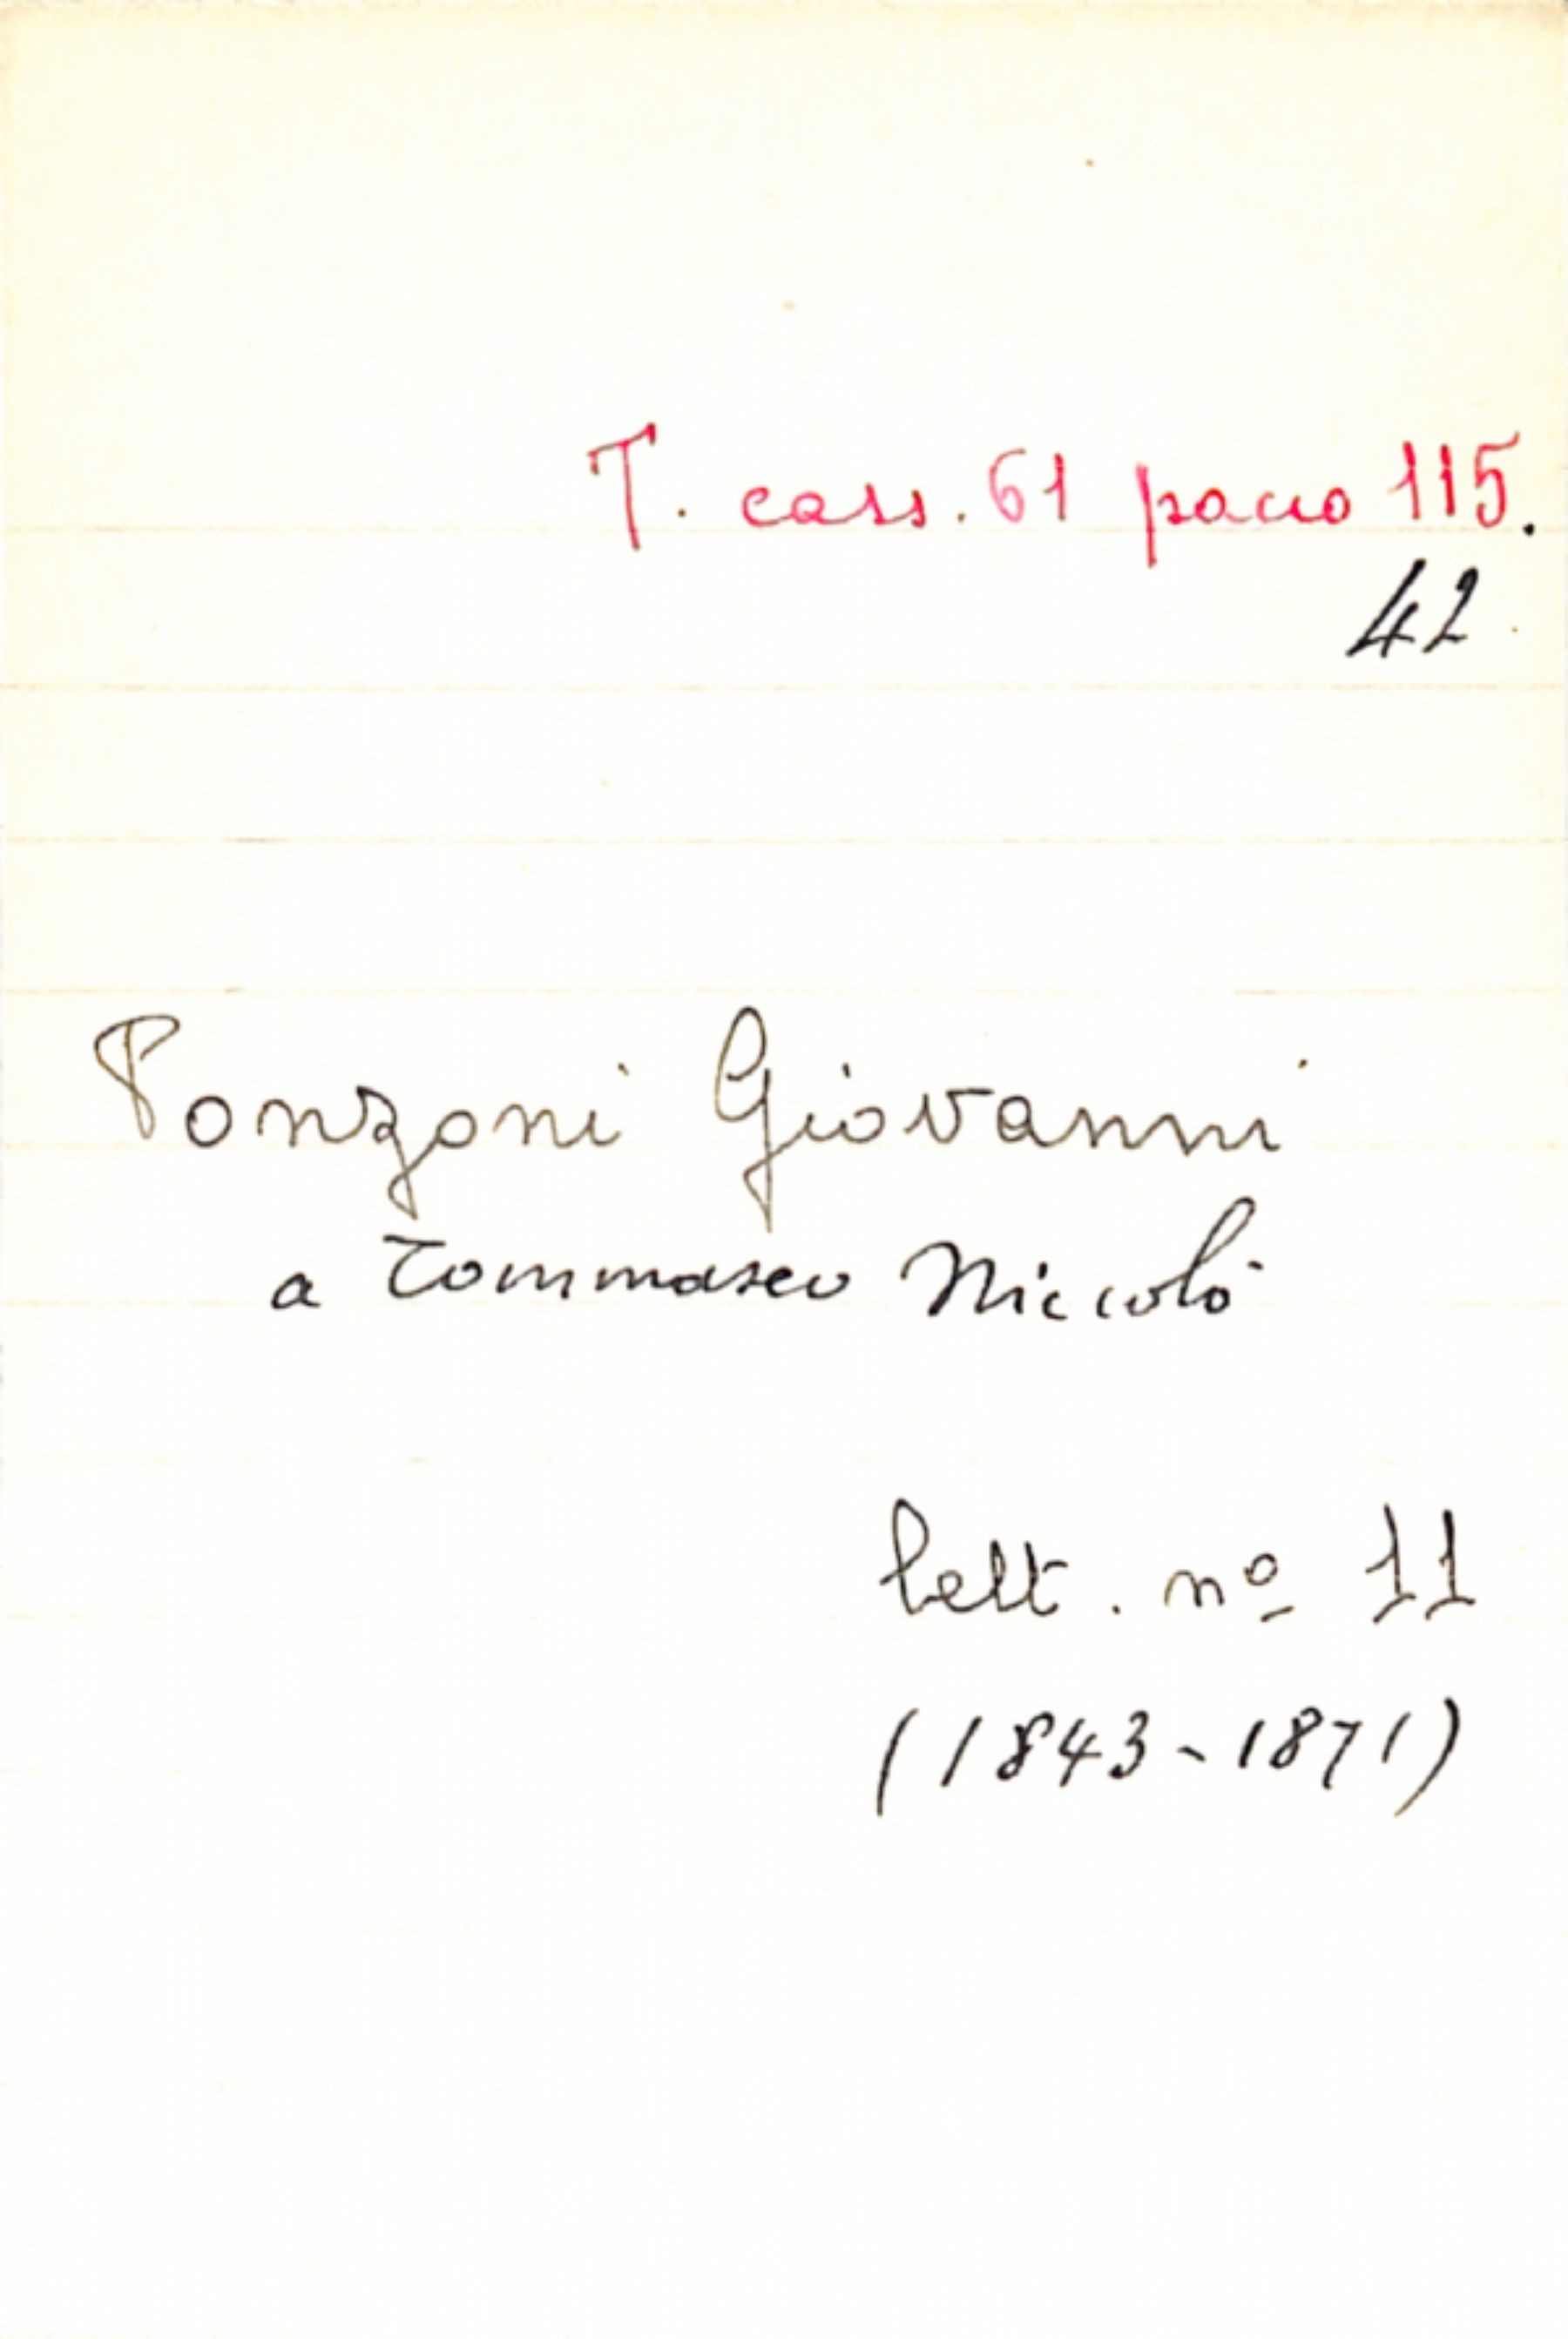 T. cass. 61 pacco 115.
42
Ponzoni Giovanni
a Tommaseo Niccolò
lett. nº 11
(1843-1871)